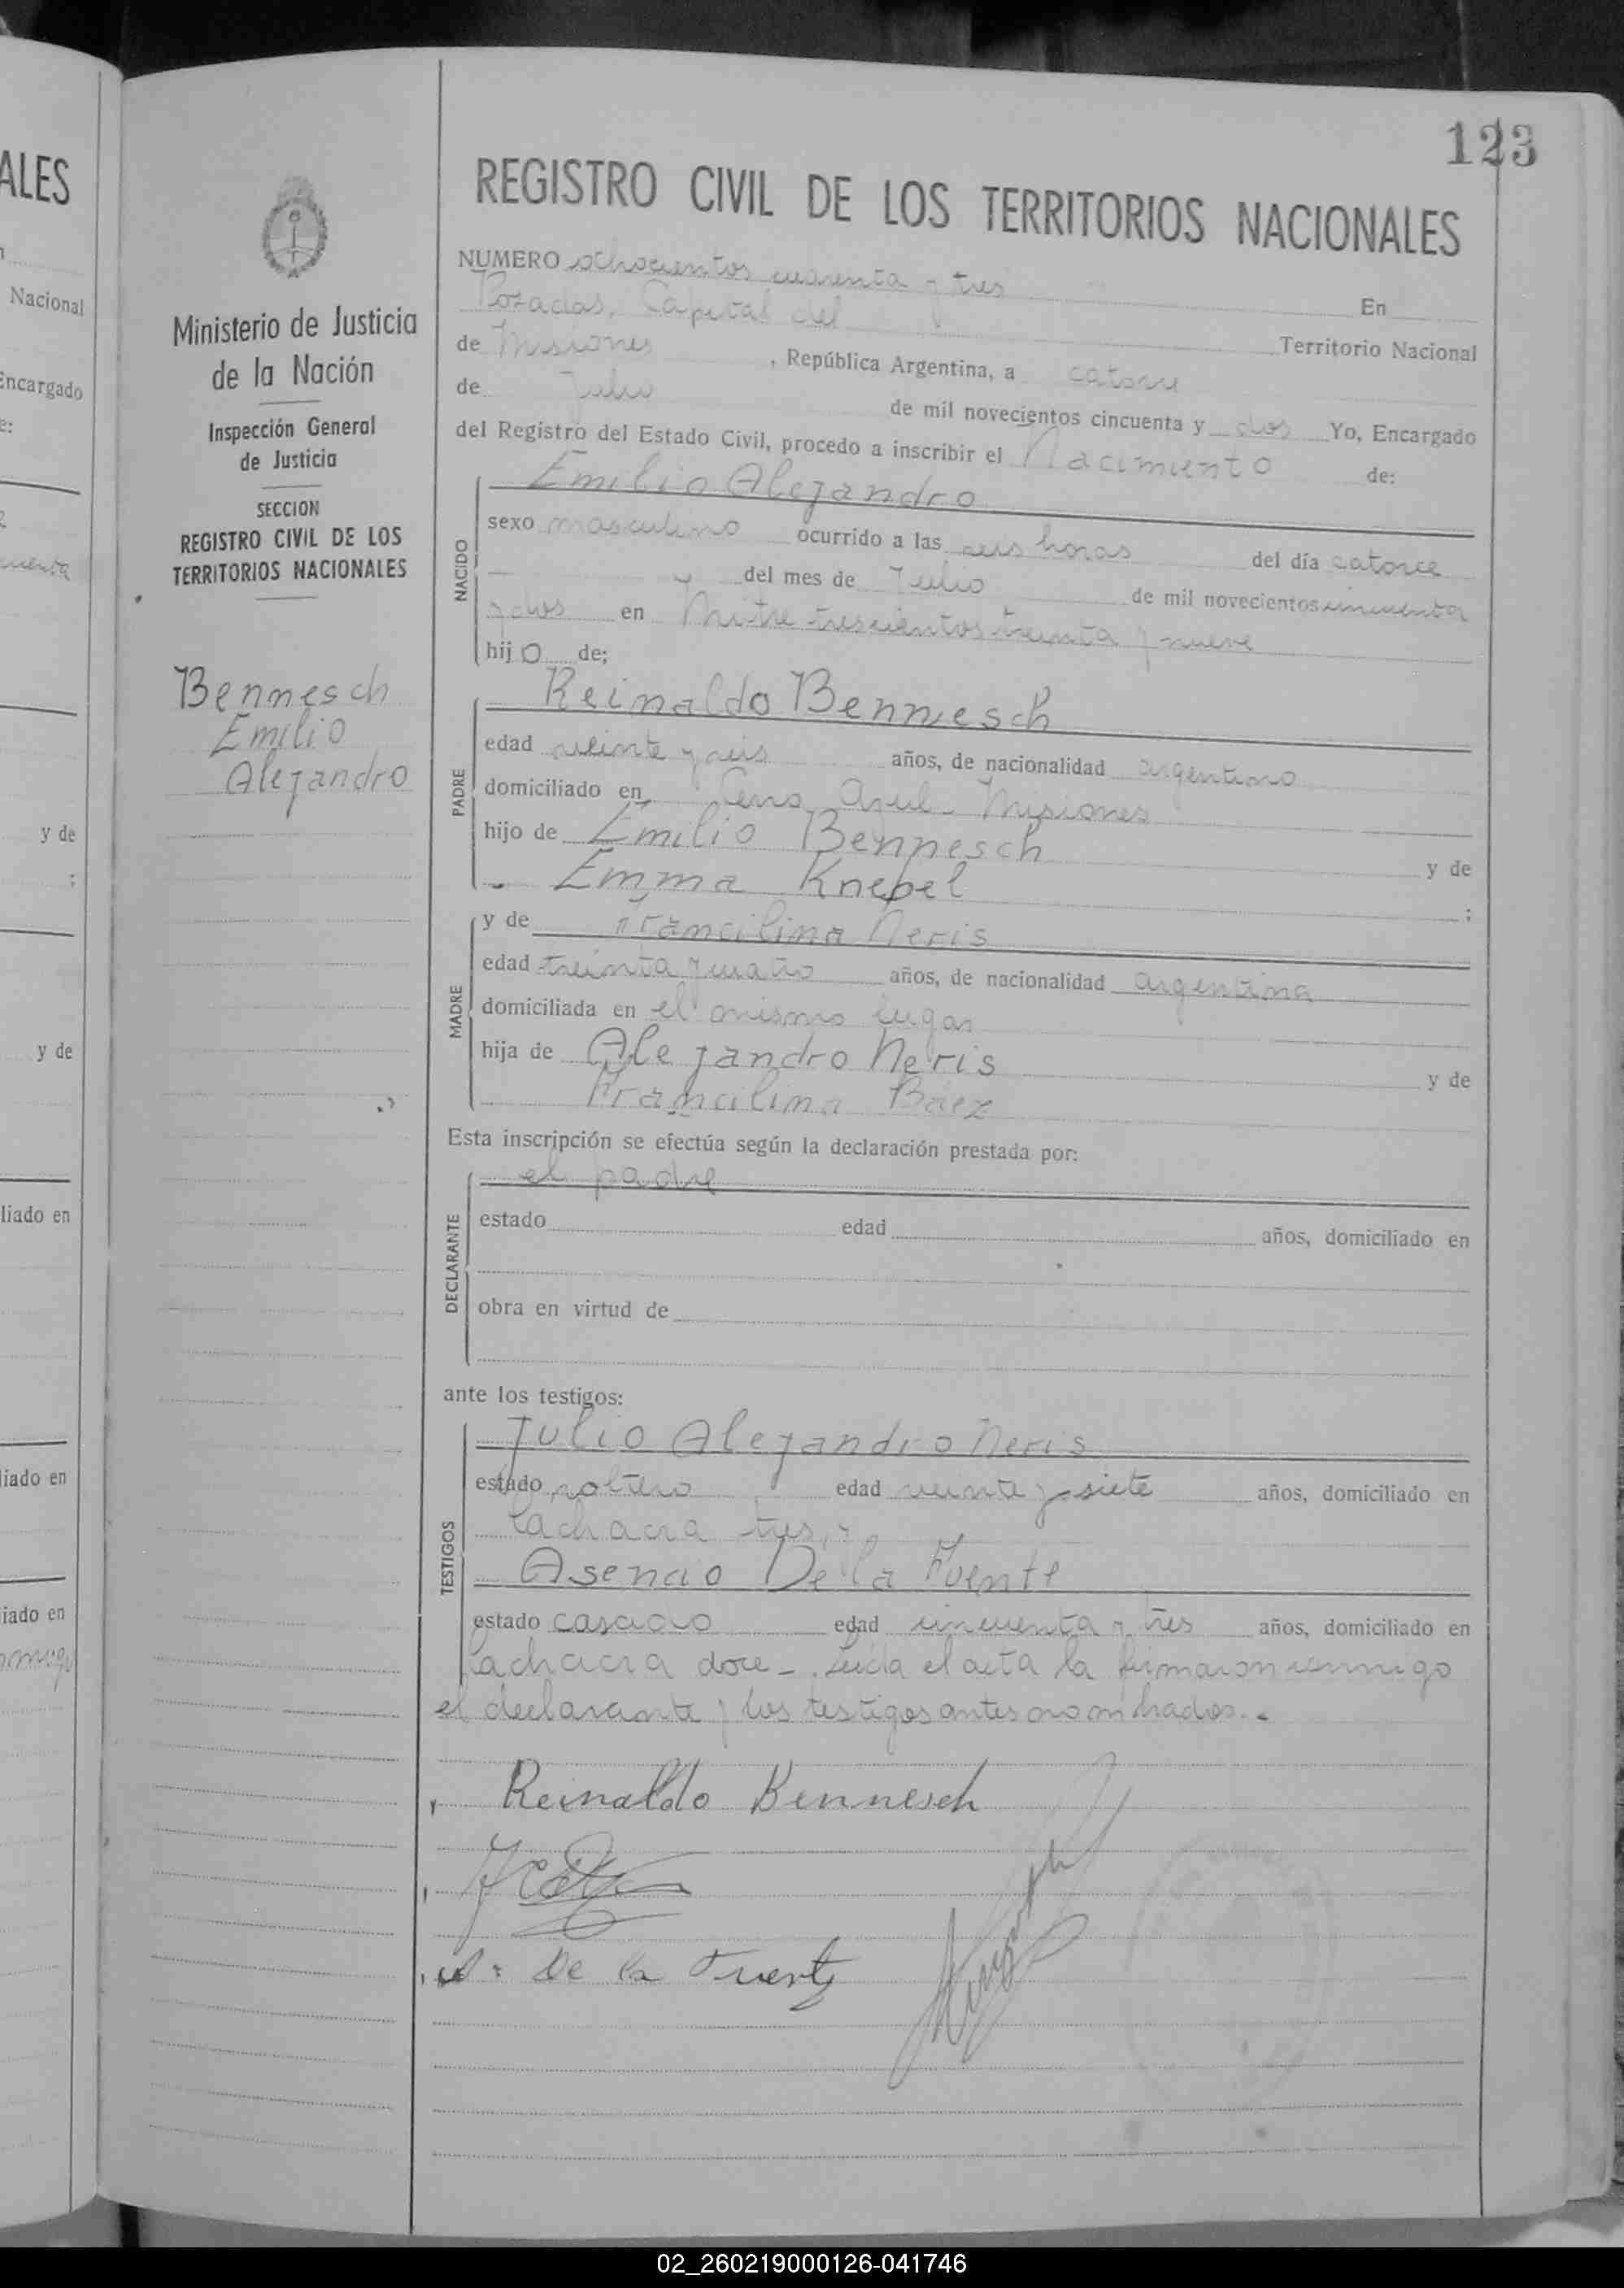 123
REGISTRO CIVIL DE LOS TERRITORIOS NACIONALES
NUMERO ochocientos cuarenta y tres En
Posadas, Capital del Territorio Nacional
de Misiones, República Argentina, a catorce
de Julio de mil novecientos cincuenta y dos Yo, Encargado
del Registro del Estado Civil, procedo a inscribir el Nacimiento de:
NACIDO
Emilio Alejandro
sexo masculino ocurrido a las seis horas del día catorce
del mes de Julio de mil novecientos cincuenta
y dos en Mitre trescientos treinta y nueve
hijo de;
PADRE
Reinaldo Bennesch
edad veinte y seis años, de nacionalidad argentino
domiciliado en Cerro Azul - Misiones
hijo de Emilio Bennesch y de
Emma Knebel ;
MADRE
y de Francilina Neris
edad treinta y cuatro años, de nacionalidad argentina
domiciliada en el mismo lugar
hija de Alejandro Neris y de
Francilina Báez
Esta inscripción se efectúa según la declaración prestada por:
DECLARANTE
el padre
estado edad años, domiciliado en
obra en virtud de
ante los testigos:
TESTIGOS
Julio Alejandro Neris
estado soltero edad veinte y siete años, domiciliado en
la chacra tres, y
Asencio De la Fuente
estado casado edad cincuenta y tres años, domiciliado en
la chacra doce -. Leída el acta la firmaron conmigo
el declarante y los testigos antes nombrados.-
Reinaldo Bennesch
De la Fuente
Ministerio de Justicia
de la Nación
Inspección General
de Justicia
SECCION
REGISTRO CIVIL DE LOS
TERRITORIOS NACIONALES
Bennesch
Emilio
Alejandro
ALES
Nacional
Encargado
e:
cuenta
y de
;
y de
liado en
liado en
iado en
02_260219000126-041746